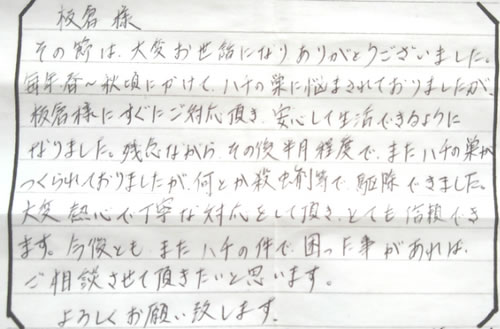 板倉様
その節は、大変お世話になりありがとうございました。
毎年春〜秋頃にかけて、ハチの巣に悩まされておりましたが、
板倉様にすぐにご対応頂き、安心して生活できるように
なりました。残念ながら、その後半月程度で、またハチの巣が
つくられておりましたが、何とか殺虫剤等で、駆除できました。
大変熱心で丁寧な対応をして頂き、とても信頼でき
ます。今後とも、またハチの件で、困った事があれば、
ご相談させて頂きたいと思います。
よろしくお願い致します。